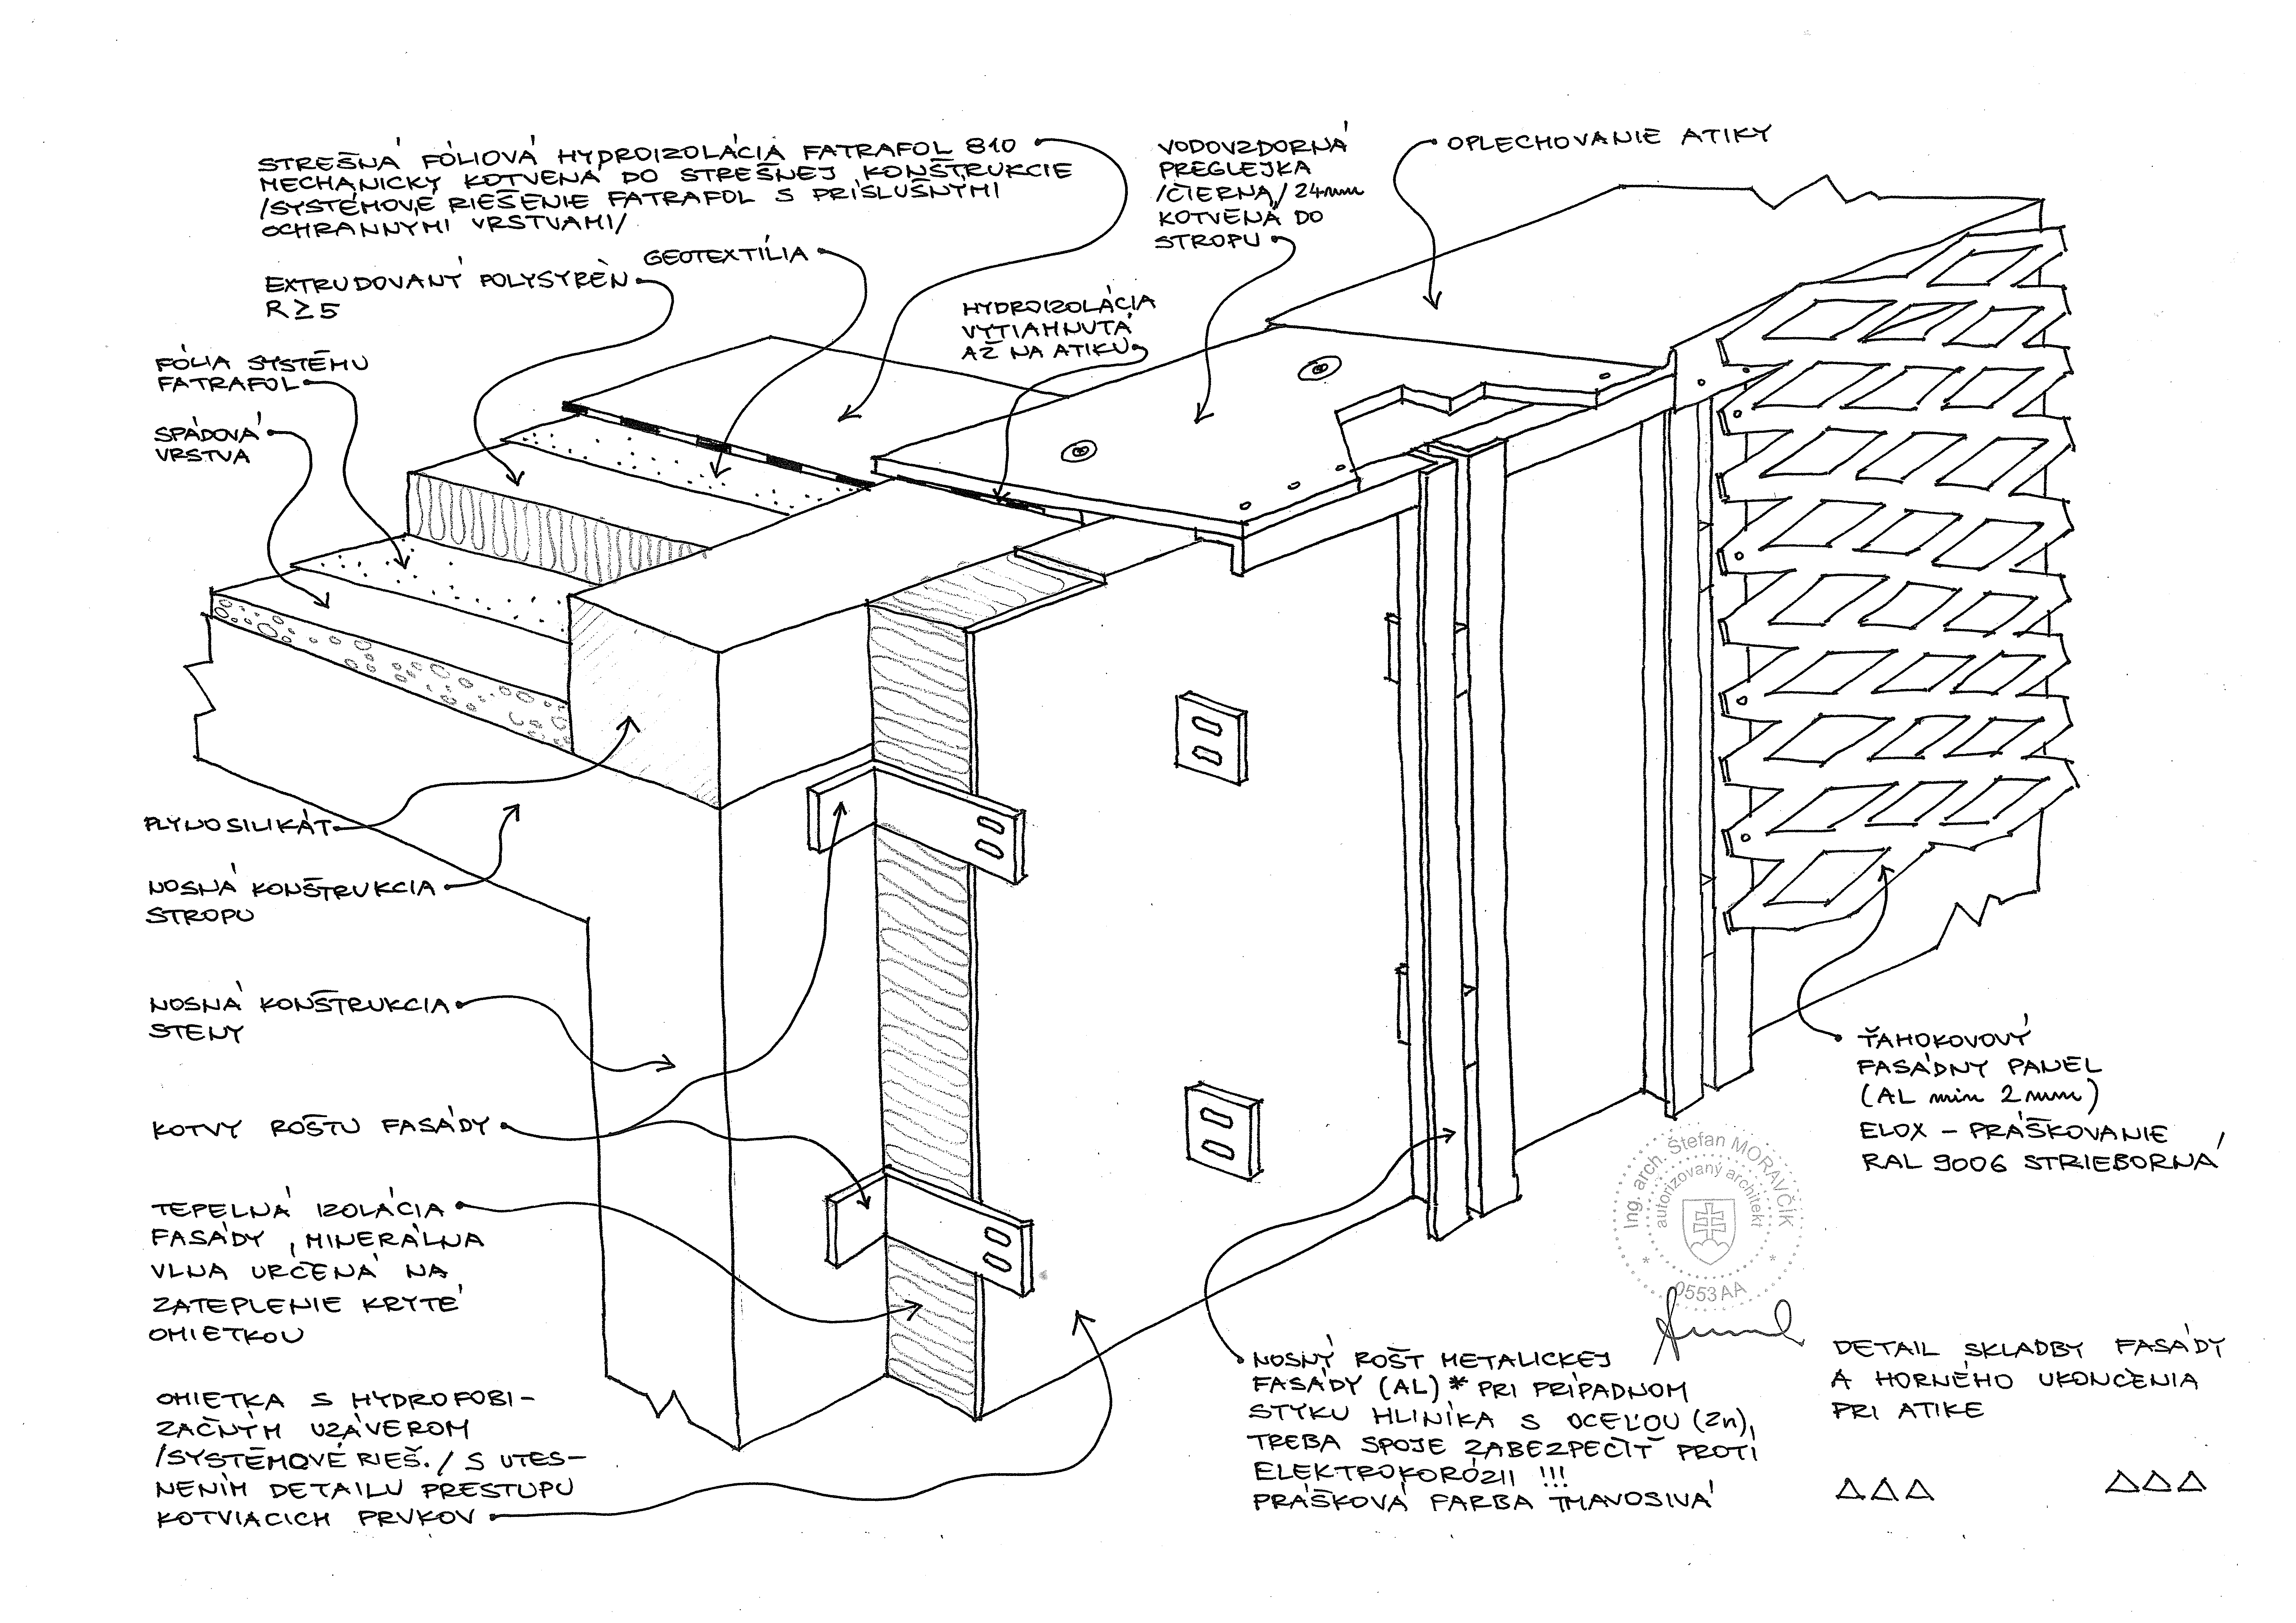 STREŠNÁ FÓLIOVÁ HYDROIZOLÁCIA FATRAFOL 810
MECHANICKY KOTVENÁ DO STREŠNEJ KONŠTRUKCIE
/SYSTÉMOVÉ RIEŠENIE FATRAFOL S PRÍSLUŠNÝMI
OCHRANNÝMI VRSTVAMI/
GEOTEXTÍLIA
EXTRUDOVANÝ POLYSYRÉN
R ≥ 5
FÓLIA SYSTÉMU
FATRAFOL
SPÁDOVÁ
VRSTVA
HYDROIZOLÁCIA
VYTIAHNUTÁ
AŽ NA ATIKU
VODOVZDORNÁ
PREGLEJKA
/ČIERNA/ 24mm
KOTVENÁ DO
STROPU
OPLECHOVANIE ATIKY
PLYNOSILIKÁT
NOSNÁ KONŠTRUKCIA
STROPU
NOSNÁ KONŠTRUKCIA
STENY
KOTVY ROŠTU FASÁDY
TEPELNÁ IZOLÁCIA
FASÁDY, MINERÁLNA
VLNA URČENÁ NA
ZATEPLENIE KRYTÉ
OMIETKOU
OMIETKA S HYDROFOBI-
ZAČNÝM UZÁVEROM
/SYSTÉMOVÉ RIEŠ./ S UTES-
NENÍM DETAILU PRESTUPU
KOTVIACICH PRVKOV
ŤAHOKOVOVÝ
FASÁDNY PANEL
(AL min 2mm)
ELOX – PRÁŠKOVANIE
RAL 9006 STRIEBORNÁ
Ing. arch. Štefan MORAVČÍK
autorizovaný architekt
* 0553AA *
NOSNÝ ROŠT METALICKEJ
FASÁDY (AL) * PRI PRÍPADNOM
STYKU HLINÍKA S OCEĽOU (Zn),
TREBA SPOJE ZABEZPEČIŤ PROTI
ELEKTROKORÓZII !!!
PRÁŠKOVÁ FARBA TMAVOSIVÁ
DETAIL SKLADBY FASÁDY
A HORNÉHO UKONČENIA
PRI ATIKE